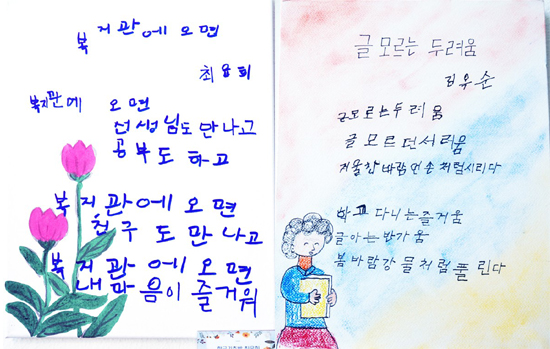 복지관에 오면
최용희
복지관에 오면
선생님도 만나고
공부도 하고
복지관에 오면
친구도 만나고
복지관에 오면
내 마음이 즐거워
글 모르는 두려움
김우순
글모르는두려움
글 모르던서러움
겨울찬바람언손처럼시리다
학교 다니는즐거움
글아는반가움
봄바람강물처럼풀린다